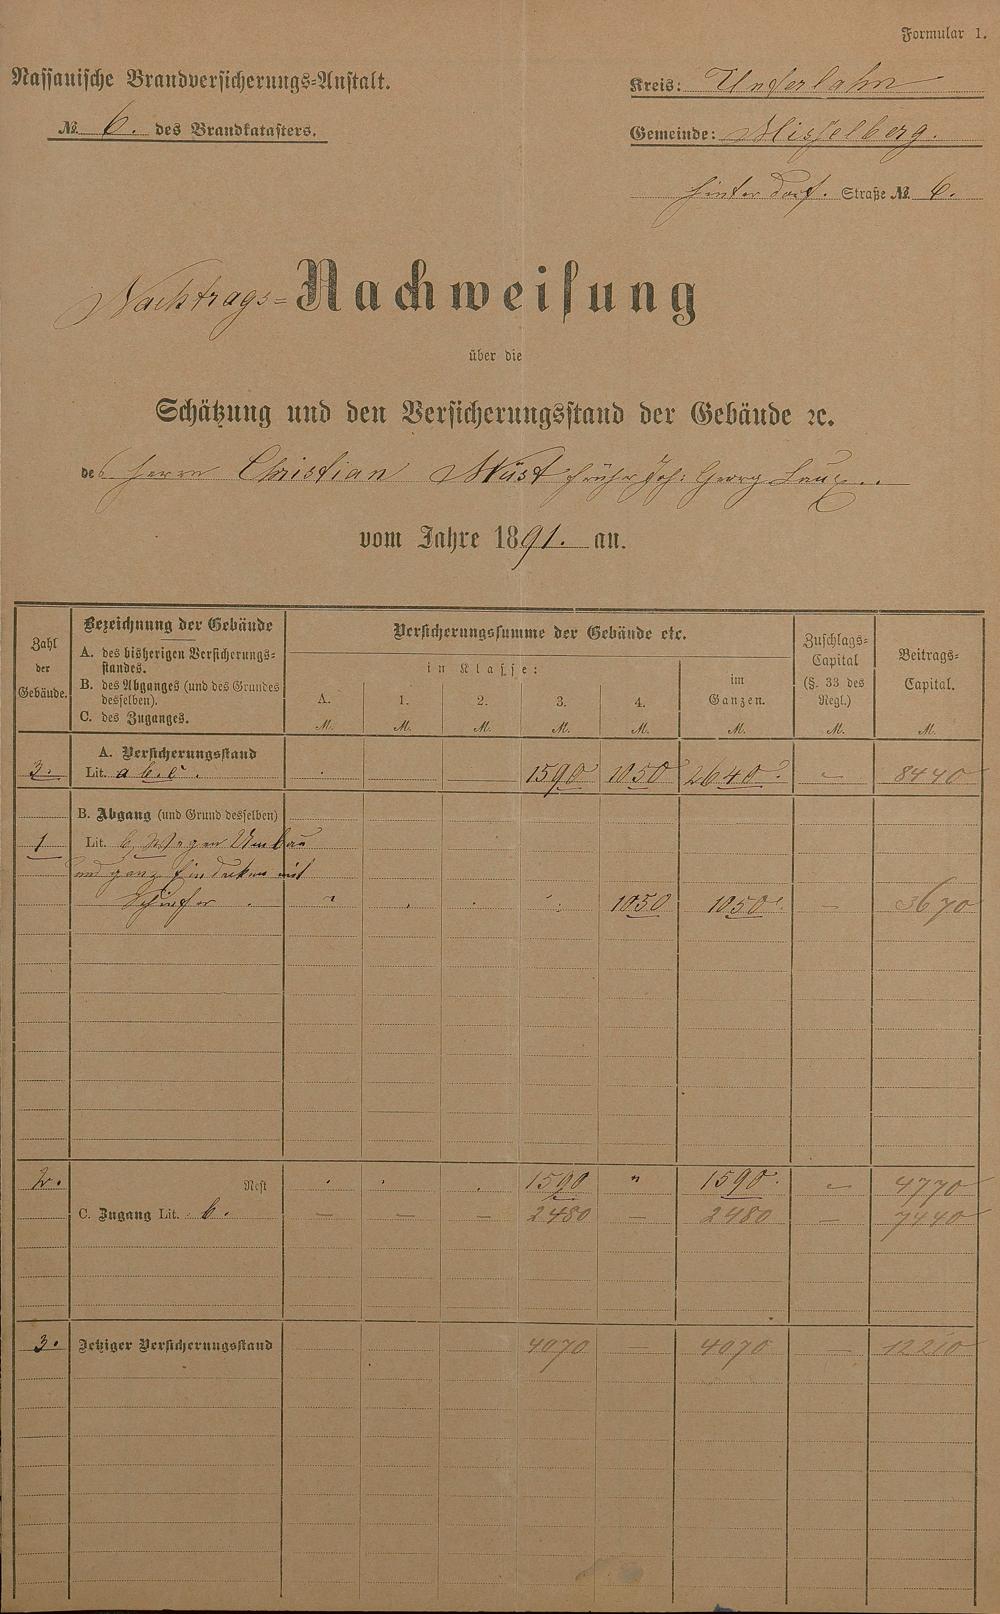 Formular 1.
Nassauische Brandversicherungs-Anstalt.
№ 6. des Brandkatasters.
Kreis: Unterlahn
Gemeinde: Misselberg.
hinter Dorf. Straße № 6.
Nachtrags=Nachweisung
über die
Schätzung und den Versicherungsstand der Gebäude ꝛc.
des Herrn Christian Wüst früher Joh: Georg Laux..
vom Jahre 1891. an.
Zahl der Gebäude.
Bezeichnung der Gebäude
A. des bisherigen Versicherungs-
standes.
B. des Abganges (und des Grundes
desselben).
C. des Zuganges.
Versicherungssumme der Gebäude etc.
in Klasse:
A. 1. 2. 3. 4.
im Ganzen.
Zuschlags-Capital (§. 33 des Regl.)
Beitrags-Capital.
M. M. M. M. M. M. M. M.
A. Versicherungsstand
3. Lit. a b. c. 1590 1050 2640 – 8440
B. Abgang (und Grund desselben)
1 Lit. b, Wegen Umbau
und ganz Eindecken mit
Schiefer 1050 1050 – 3670
2. Rest 1590 " 1590 – 4770
C. Zugang Lit. b. – – – 2480 2480 – 7440
3. Jetziger Versicherungsstand 4070 – 4070 – 12210